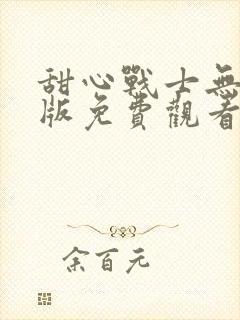 甜心戰士無
版免費觀看
余百元